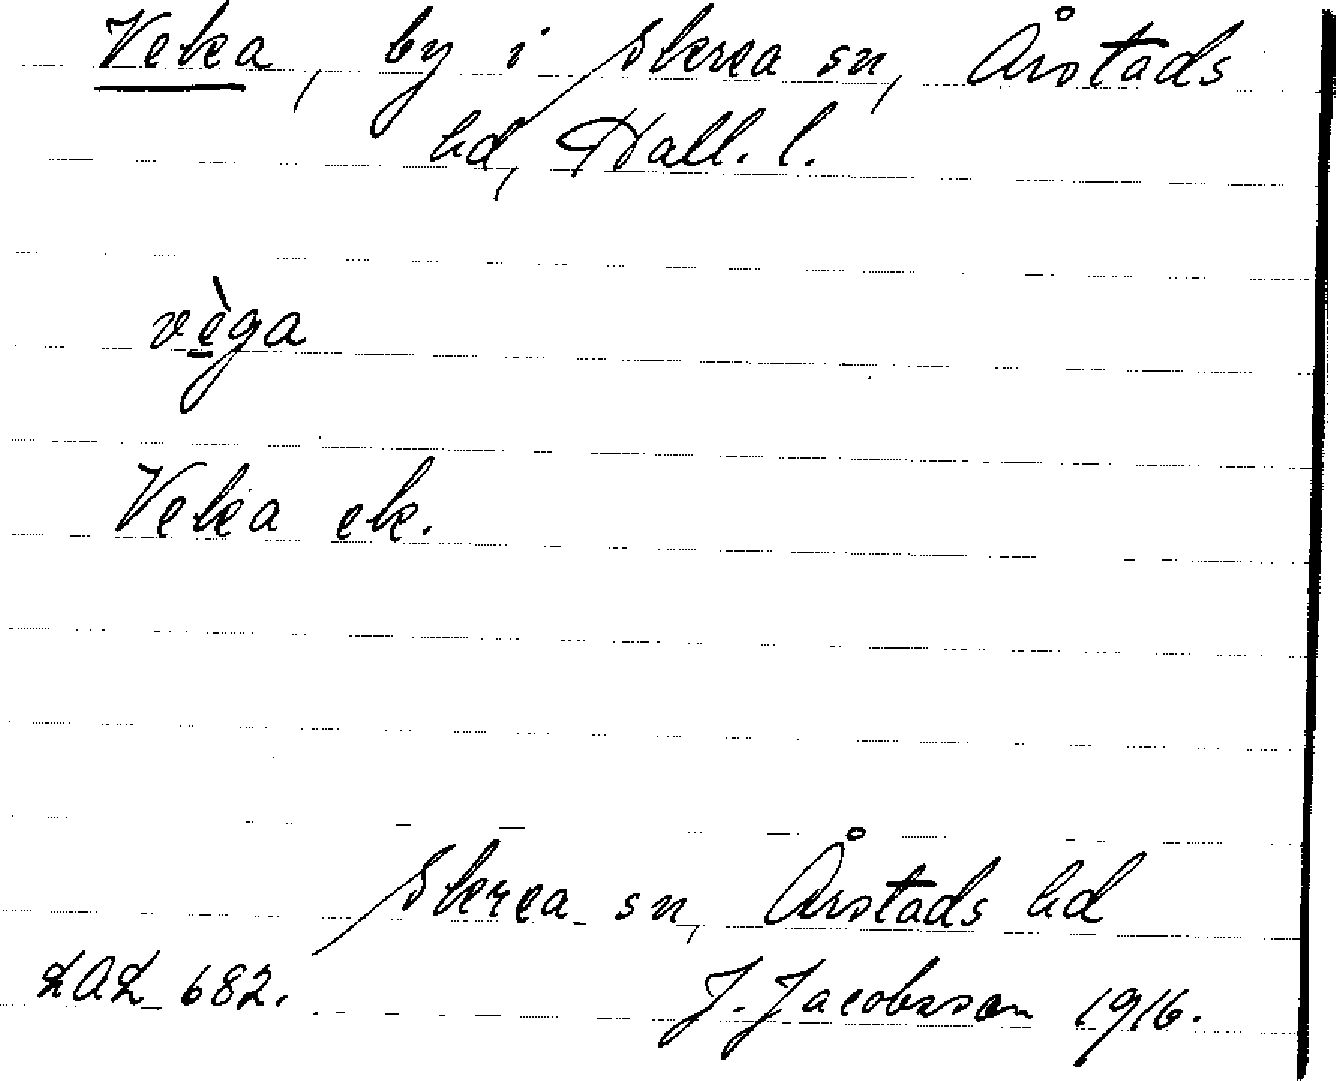 Veka, by i Skrea sn, Årstads
hd, Hall. l.
vèga
Veka ek.
Skrea sn, Årstads hd
LAL 682.
J. Jacobsson 1916.